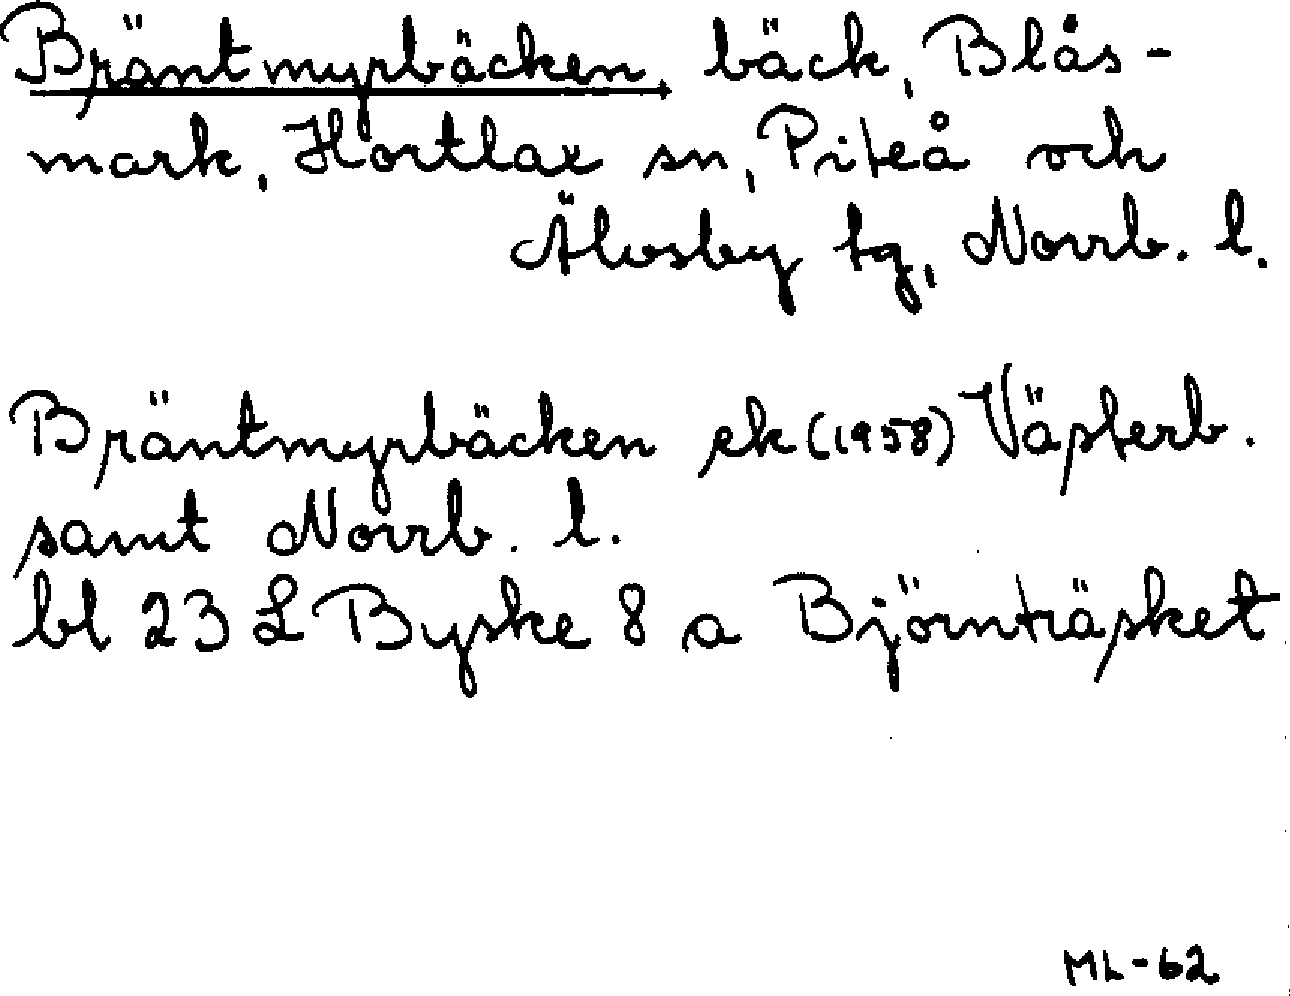 Bräntmyrbäcken, bäck, Blås-
mark, Hortlax sn, Piteå och
Älvsby tg, Norrb. l.
Bräntmyrbäcken ek (1958) Västerb.
samt Norrb. l.
bl 23 L Byske 8 a Björnträsket
ML-62